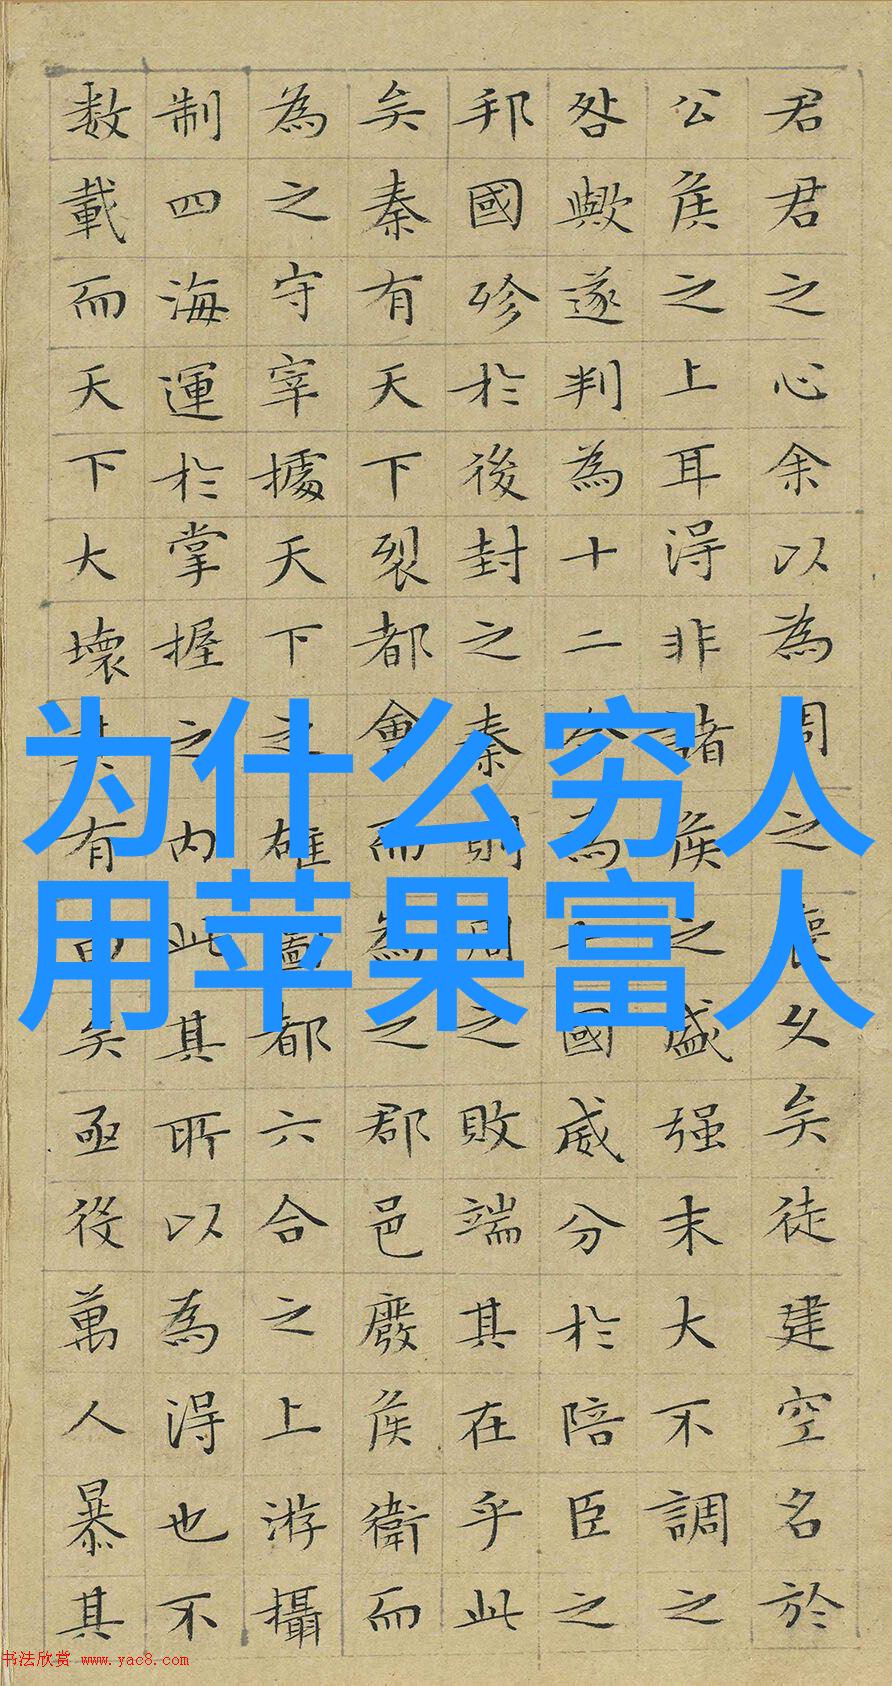 君君之心余以為周之喪久矣徒建空名於
公侯之上耳得非諸侯之盛强末大不調之
咎歟遂判為十二合為七國威分於陪臣之
邦國殄於後封之秦則周之敗端其在乎此
矣秦有天下裂都會而為之郡邑廢侯衛而
為之守宰據天下之雄圖都六合之上游攝
制四海運於掌握之內此其所以為得也不
数載而天下大壞其有由矣亟役萬人暴其
为什么穷人
用苹果富人
书法欣赏 www.yac8.com